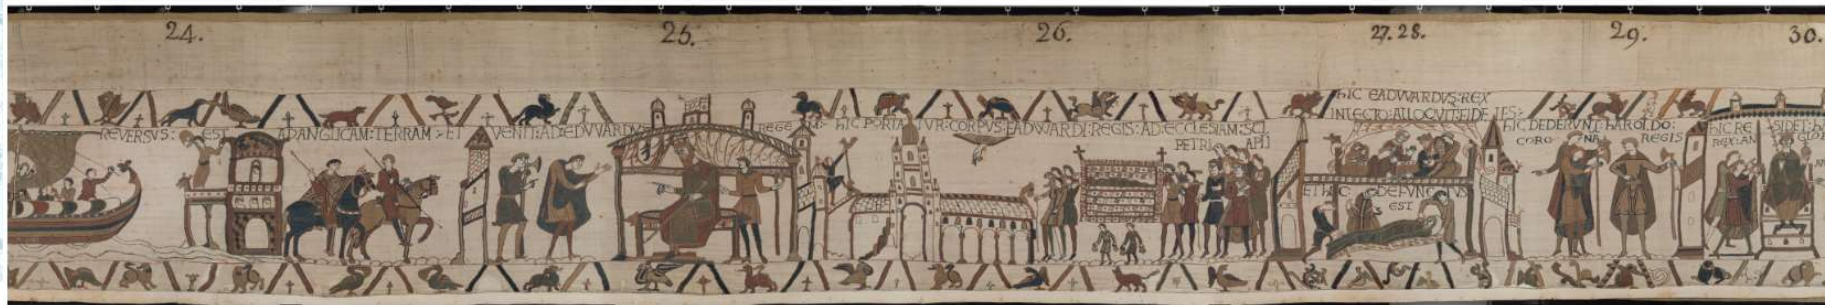 24.
25.
26.
27. 28.
29.
30.
REVERSVS : EST AD ANGLICAM : TERRAM : ET VENIT : AD : EDVVARDV
REGE
HIC PORTATVR : CORPVS : EADWARDI : REGIS : AD : ECCLESIAM : SCI
PETRI APLI
HIC EADVVARDVS : REX
IN LECTO : ALLOQVIT : FIDELES :
ET HIC DEFVNCTVS
EST
HIC DEDERVNT : HAROLDO :
CORONA REGIS
HIC RESIDET : HA
REX : AN GLOR